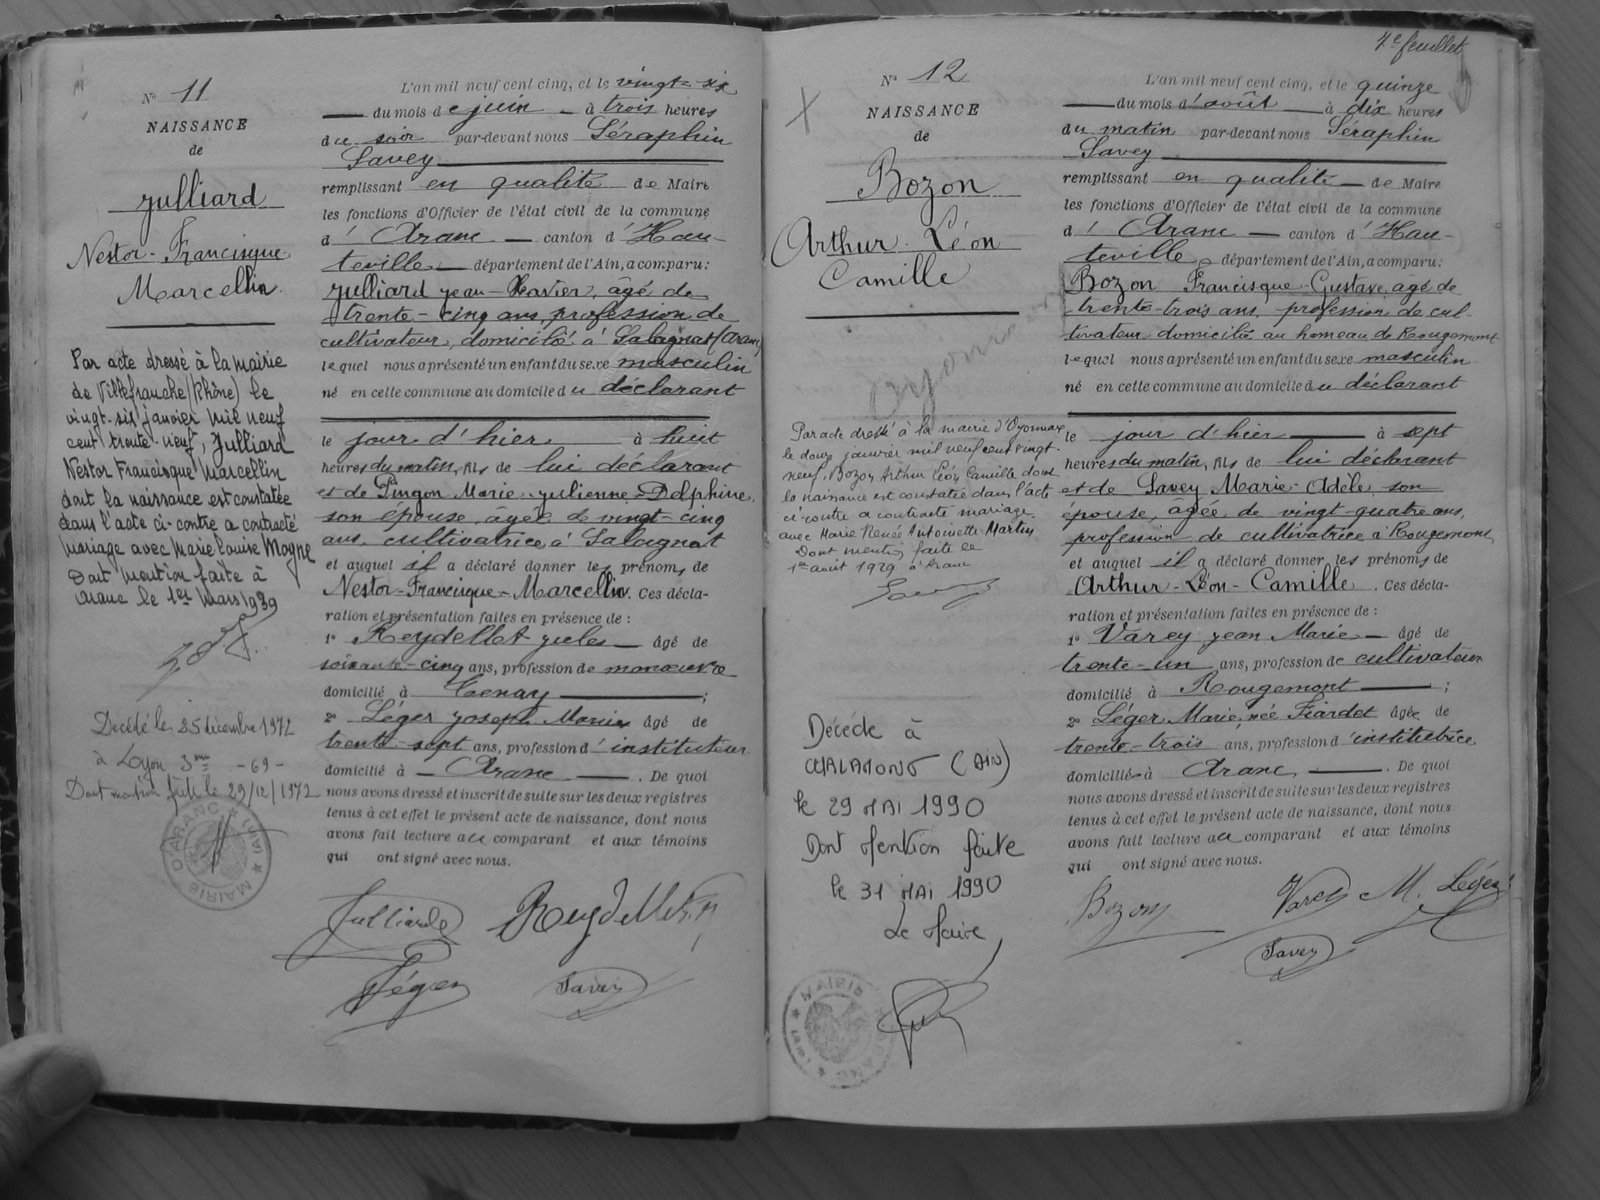 N° 11
NAISSANCE
de
Julliard
Nestor-Francisque
Marcellin
Par acte dressé à la mairie
de Villefranche (Rhône) le
vingt-six janvier mil neuf
cent trente-neuf, Julliard
Nestor Francisque Marcellin
dont la naissance est constatée
dans l'acte ci-contre a contracté
mariage avec Marie Louise Mogne
Dont mention faite à
Aranc le 1er Mars 1939
Décédé le 25 décembre 1972
à Lyon 3me -69-
Dont mention faite le 29/12/1972
MAIRIE D'ARANC (AIN)
L'an mil neuf cent cinq, et le vingt-six
du mois de juin à trois heures
du soir par-devant nous Séraphin
Savey
remplissant en qualité de Maire
les fonctions d'Officier de l'état civil de la commune
d'Aranc canton d'Hau-
teville département de l'Ain, a comparu:
Julliard Jean-Xavier, âgé de
trente-cinq ans, profession de
cultivateur, domicilié à Salagnat (Aranc)
lequel nous a présenté un enfant du sexe masculin
né en cette commune au domicile du déclarant
le jour d'hier à huit
heures du matin, fils de lui déclarant
et de Pingon Marie-Julienne-Delphine,
son épouse, âgée de vingt-cinq
ans, cultivatrice à Salagnat
et auquel il a déclaré donner les prénoms de
Nestor-Francisque-Marcellin. Ces décla-
ration et présentation faites en présence de :
1° Reydellet Jules âgé de
soixante-cinq ans, profession de manœuvre
domicilié à Tenay ;
2° Léger Joseph Marie âgé de
trente-sept ans, profession d'instituteur
domicilié à Aranc . De quoi
nous avons dressé et inscrit de suite sur les deux registres
tenus à cet effet le présent acte de naissance, dont nous
avons fait lecture au comparant et aux témoins
qui ont signé avec nous.
Julliard Reydellet
Léger Savey
4e feuillet
N° 12
NAISSANCE
de
Bozon
Arthur-Léon
Camille
Par acte dressé à la mairie d'Oyonnax
le douze janvier mil neuf cent vingt-
neuf, Bozon Arthur Léon Camille dont
la naissance est constatée dans l'acte
ci-contre a contracté mariage
avec Marie Renée Antoinette Martin
Dont mention faite le
1er août 1929 à Aranc
Savey
Décédé à
CHALAMONT (AIN)
le 29 MAI 1990
Dont Mention faite
le 31 MAI 1990
Le Maire
MAIRIE D'ARANC (AIN)
L'an mil neuf cent cinq, et le quinze
du mois d'août à dix heures
du matin par-devant nous Séraphin
Savey
remplissant en qualité de Maire
les fonctions d'Officier de l'état civil de la commune
d'Aranc canton d'Hau-
teville département de l'Ain, a comparu:
Bozon Francisque-Gustave, âgé de
trente-trois ans, profession de cul-
tivateur domicilié au hameau de Rougemont
lequel nous a présenté un enfant du sexe masculin
né en cette commune au domicile du déclarant
le jour d'hier à sept
heures du matin, fils de lui déclarant
et de Savey Marie-Adèle, son
épouse, âgée de vingt-quatre ans,
profession de cultivatrice à Rougemont,
et auquel il a déclaré donner les prénoms de
Arthur-Léon-Camille. Ces décla-
ration et présentation faites en présence de :
1° Varey Jean Marie âgé de
trente-un ans, profession de cultivateur
domicilié à Rougemont ;
2° Léger Marie, née Fiardet âgée de
trente-trois ans, profession d'institutrice
domiciliée à Aranc . De quoi
nous avons dressé et inscrit de suite sur les deux registres
tenus à cet effet le présent acte de naissance, dont nous
avons fait lecture au comparant et aux témoins
qui ont signé avec nous.
Bozon Varey M. Léger
Savey